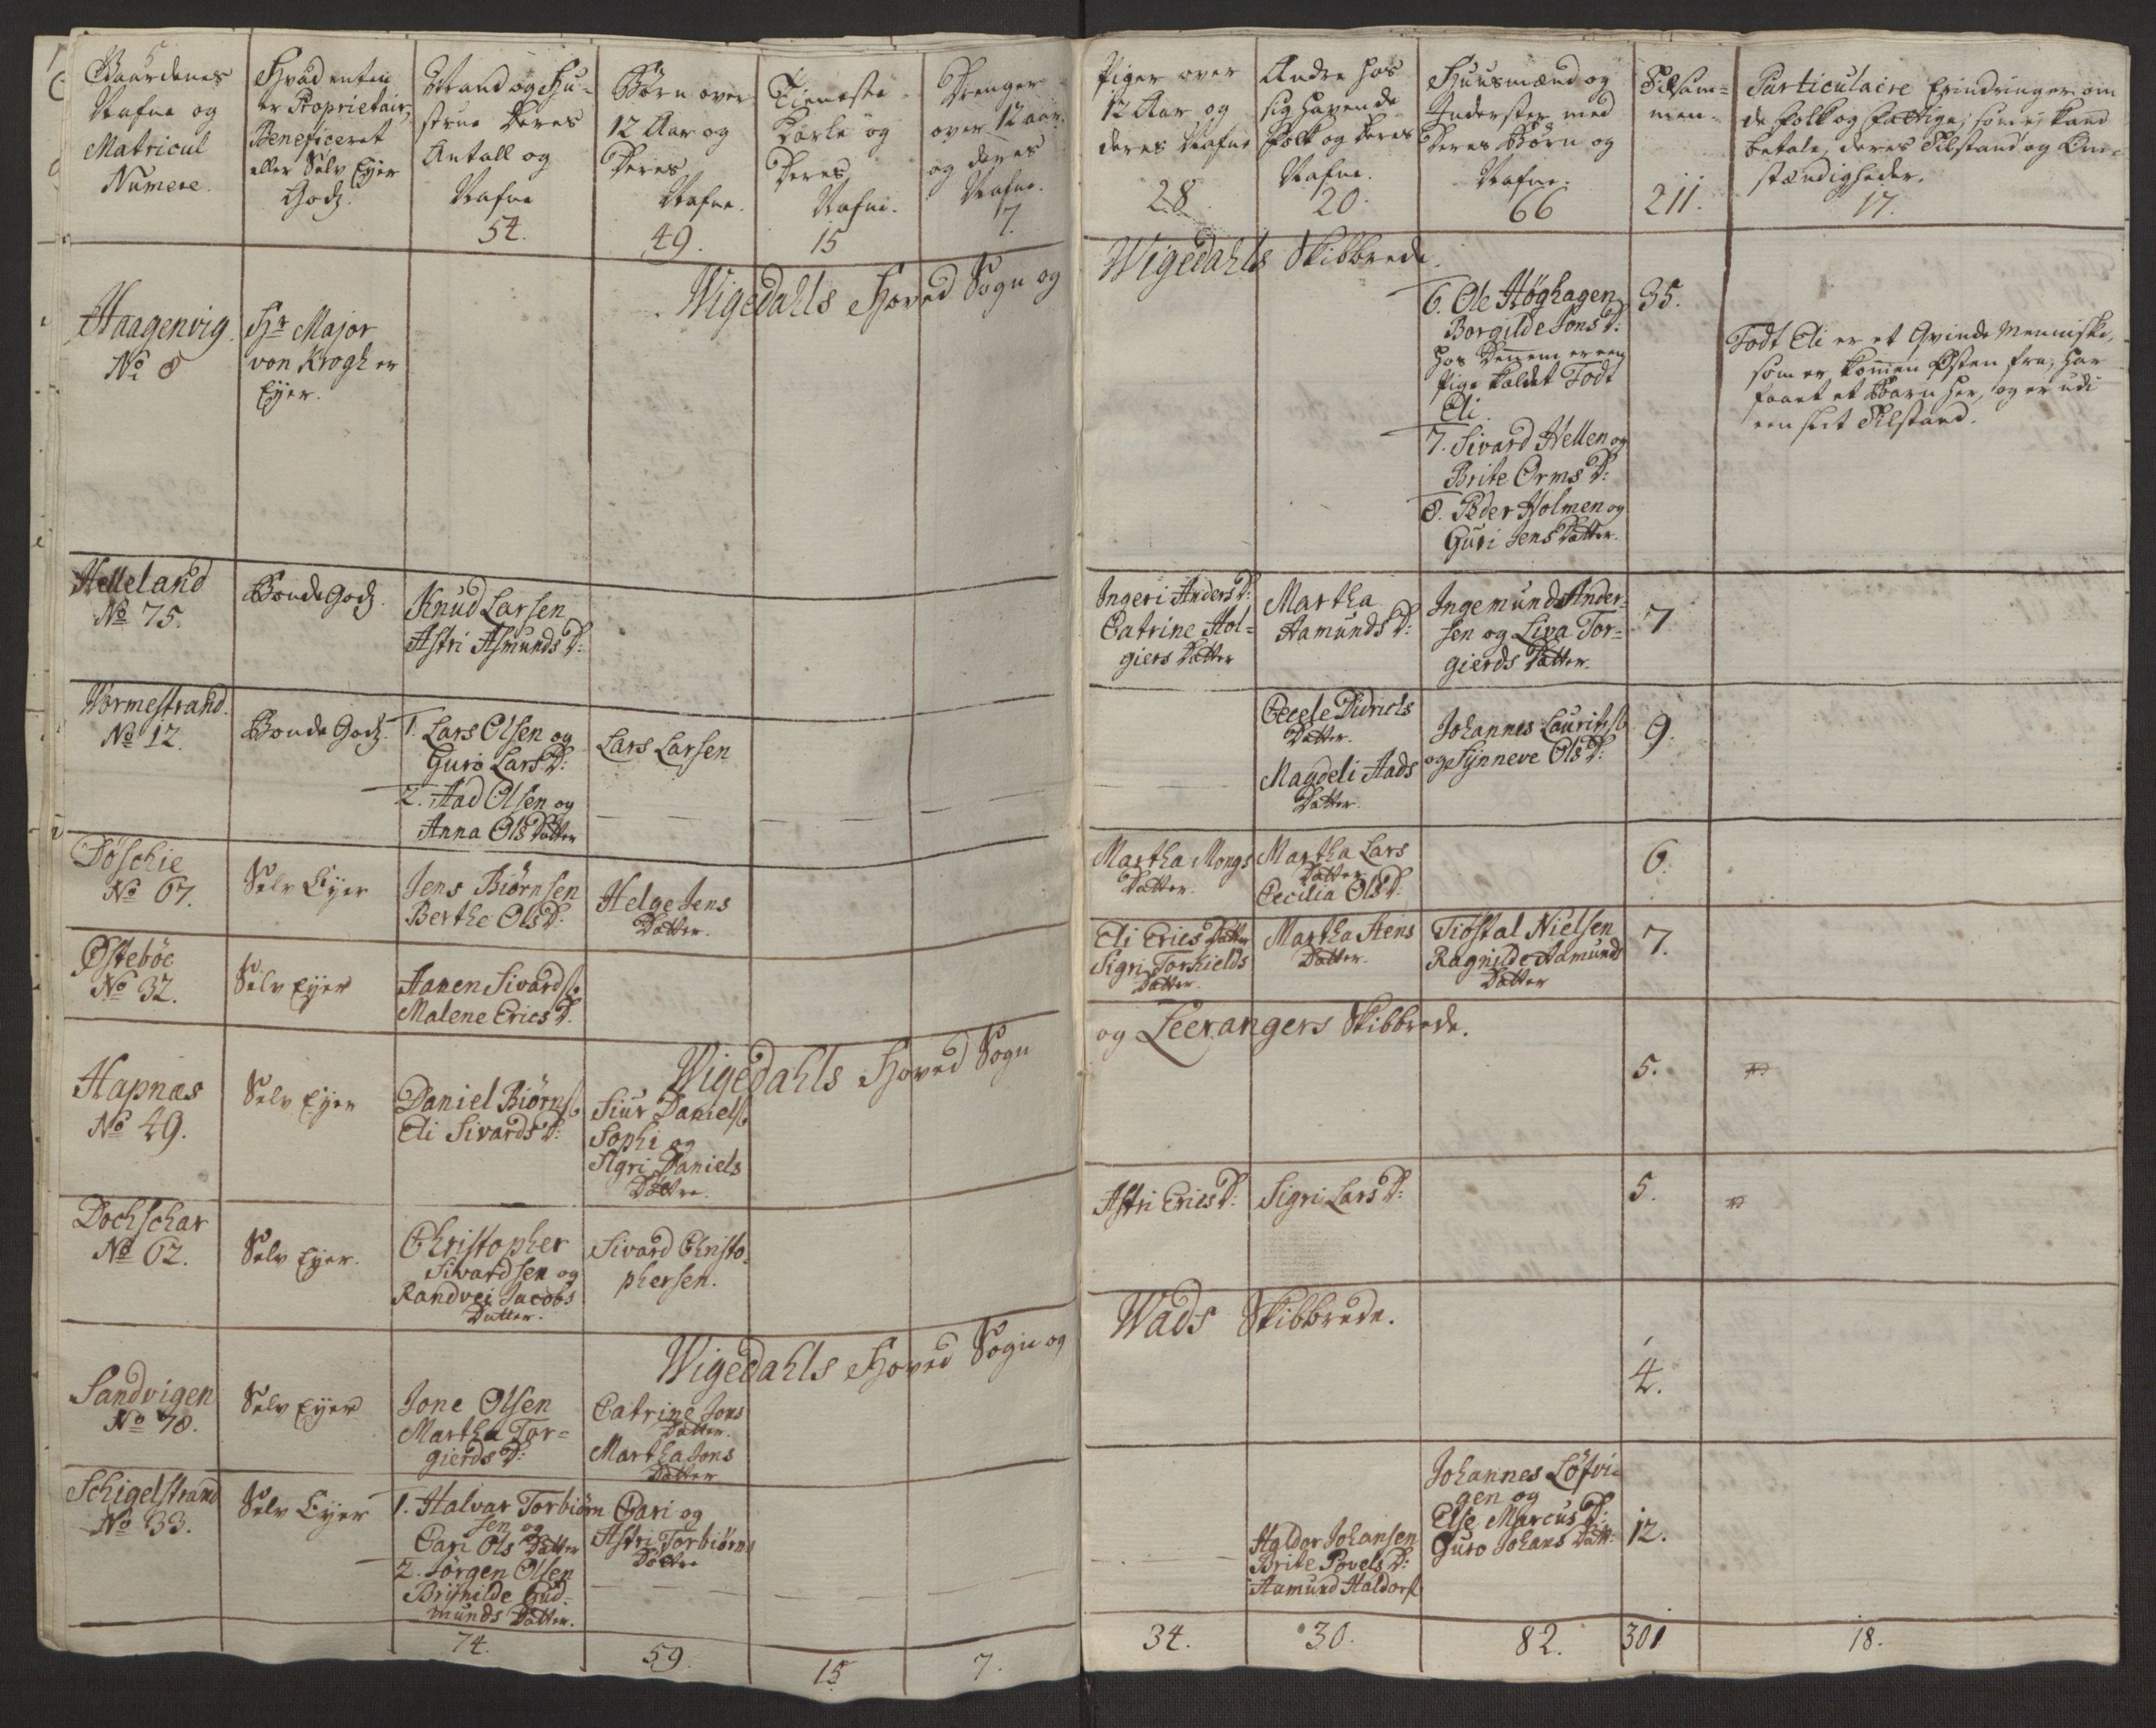 Gaardenes
Nafne og
Matricul
Numere.
Hvad enten
er Proprietair,
Beneficeret
eller Selv Eyer
Godz.
Mand og Hu-
strue deres
Antall og
Nafne
54.
Børn over
12 Aar og
deres
Nafne.
49.
Tieneste
Karle og
deres
Nafne.
15
Drenger
over 12 aar
og deres
Nafne.
7.
Piger over
12 Aar og
deres Nafne
28.
Andre hos
sig havende
folk og deres
Nafne.
20.
Huusmænd og
Inderster med
deres Børn og
Nafne.
66
Tilsam-
men.
211.
Particulaire Erindringer om
de folk og fattige, som ej kand
betale, deres Tilstand og Om-
stændigheder.
17.
Wigedahls Hoved Sogn og
Wigedahls Skibbrede.
Haagenvig.
No 8
Hr Major
von Krogh er
Eyer.
6. Ole Høghagen
Borgilde Jons D:
hos dennem er een
Pige kaldet Todt
Eli
7. Sivard Hellen og
Brite Orms D:
8. Peder Holmen og
Guri Jens Datter.
35.
Todt Eli er et Qvinde Menniske,
som er kommen Østen fra, har
faaet et Barn her, og er udi
een slet Tilstand.
Helleland
No 75.
Bonde Godz.
Knud Larsen
Astri Asmunds D:
Ingeri Anders D:
Catrine Hol-
giers Datter
Martha
Aamunds D:
Ingemund Ander-
sen og Liva Tor-
gierds Datter.
7
Wormestrand.
No 12.
Bonde Godz.
1. Lars Olsen og
Guro Lars D:
2. Aad Olsen og
Anna Ols Datter
Lars Larsen
Cecele Didrichs
Datter.
Magdeli Aads
Datter.
Johannes Lauritzs
og Synneve Ols D:
9.
Döschie
No 67.
Selv Eyer
Jens Biörnsen
Berthe Ols D:
Helge Jens
Datter.
Martha Mongs
Datter.
Martha Lars
Datter
Cecilia Ols D:
6.
Østebøe
No 32.
Selv Eyer
Aanen Sivards.
Malene Erics D.
Eli Erics Datter
Sigri Torkields
Datter.
Martha Aens
Datter.
Tiöstal Nielsen
Ragnilde Aamunds
Datter
7.
Wigedahls Hoved Sogn
og Leerangers Skibbrede.
Hapnæs
No 49.
Selv Eyer
Daniel Biörns
Eli Sivards D:
Siur Daniels
Sophi og
Sigri Daniels
Døttre.
5.
Dochschar
No 62.
Selv Eyer.
Christopher
Sivardsen og
Randvei Jacobs
Datter.
Sivard Christo-
phersen.
Astri Erics D:
Sigri Lars D:
5.
Wigedahls Hoved Sogn og
Wads Skibbrede.
Sandvigen
No 78.
Selv Eyer
Jone Olsen
Martha Tor-
gierds D:
Catrine Jons
Datter.
Martha Jons
Datter
4.
Schigelstrand
No 33.
Selv Eyer
1. Halvar Torbiörn
sen og
Cari Ols Datter
2. Jörgen Olsen
Brynilde Gud-
munds Datter.
Cari og
Astri Torbiörns
Døttre
Haldor Johansen
Brite Povels D:
Aamund Haldors
Johannes Löfvi-
gen og
Else Marcus D:
Guro Johans Datt:
12.
74.
59.
15
7.
34.
30.
82.
301
18.